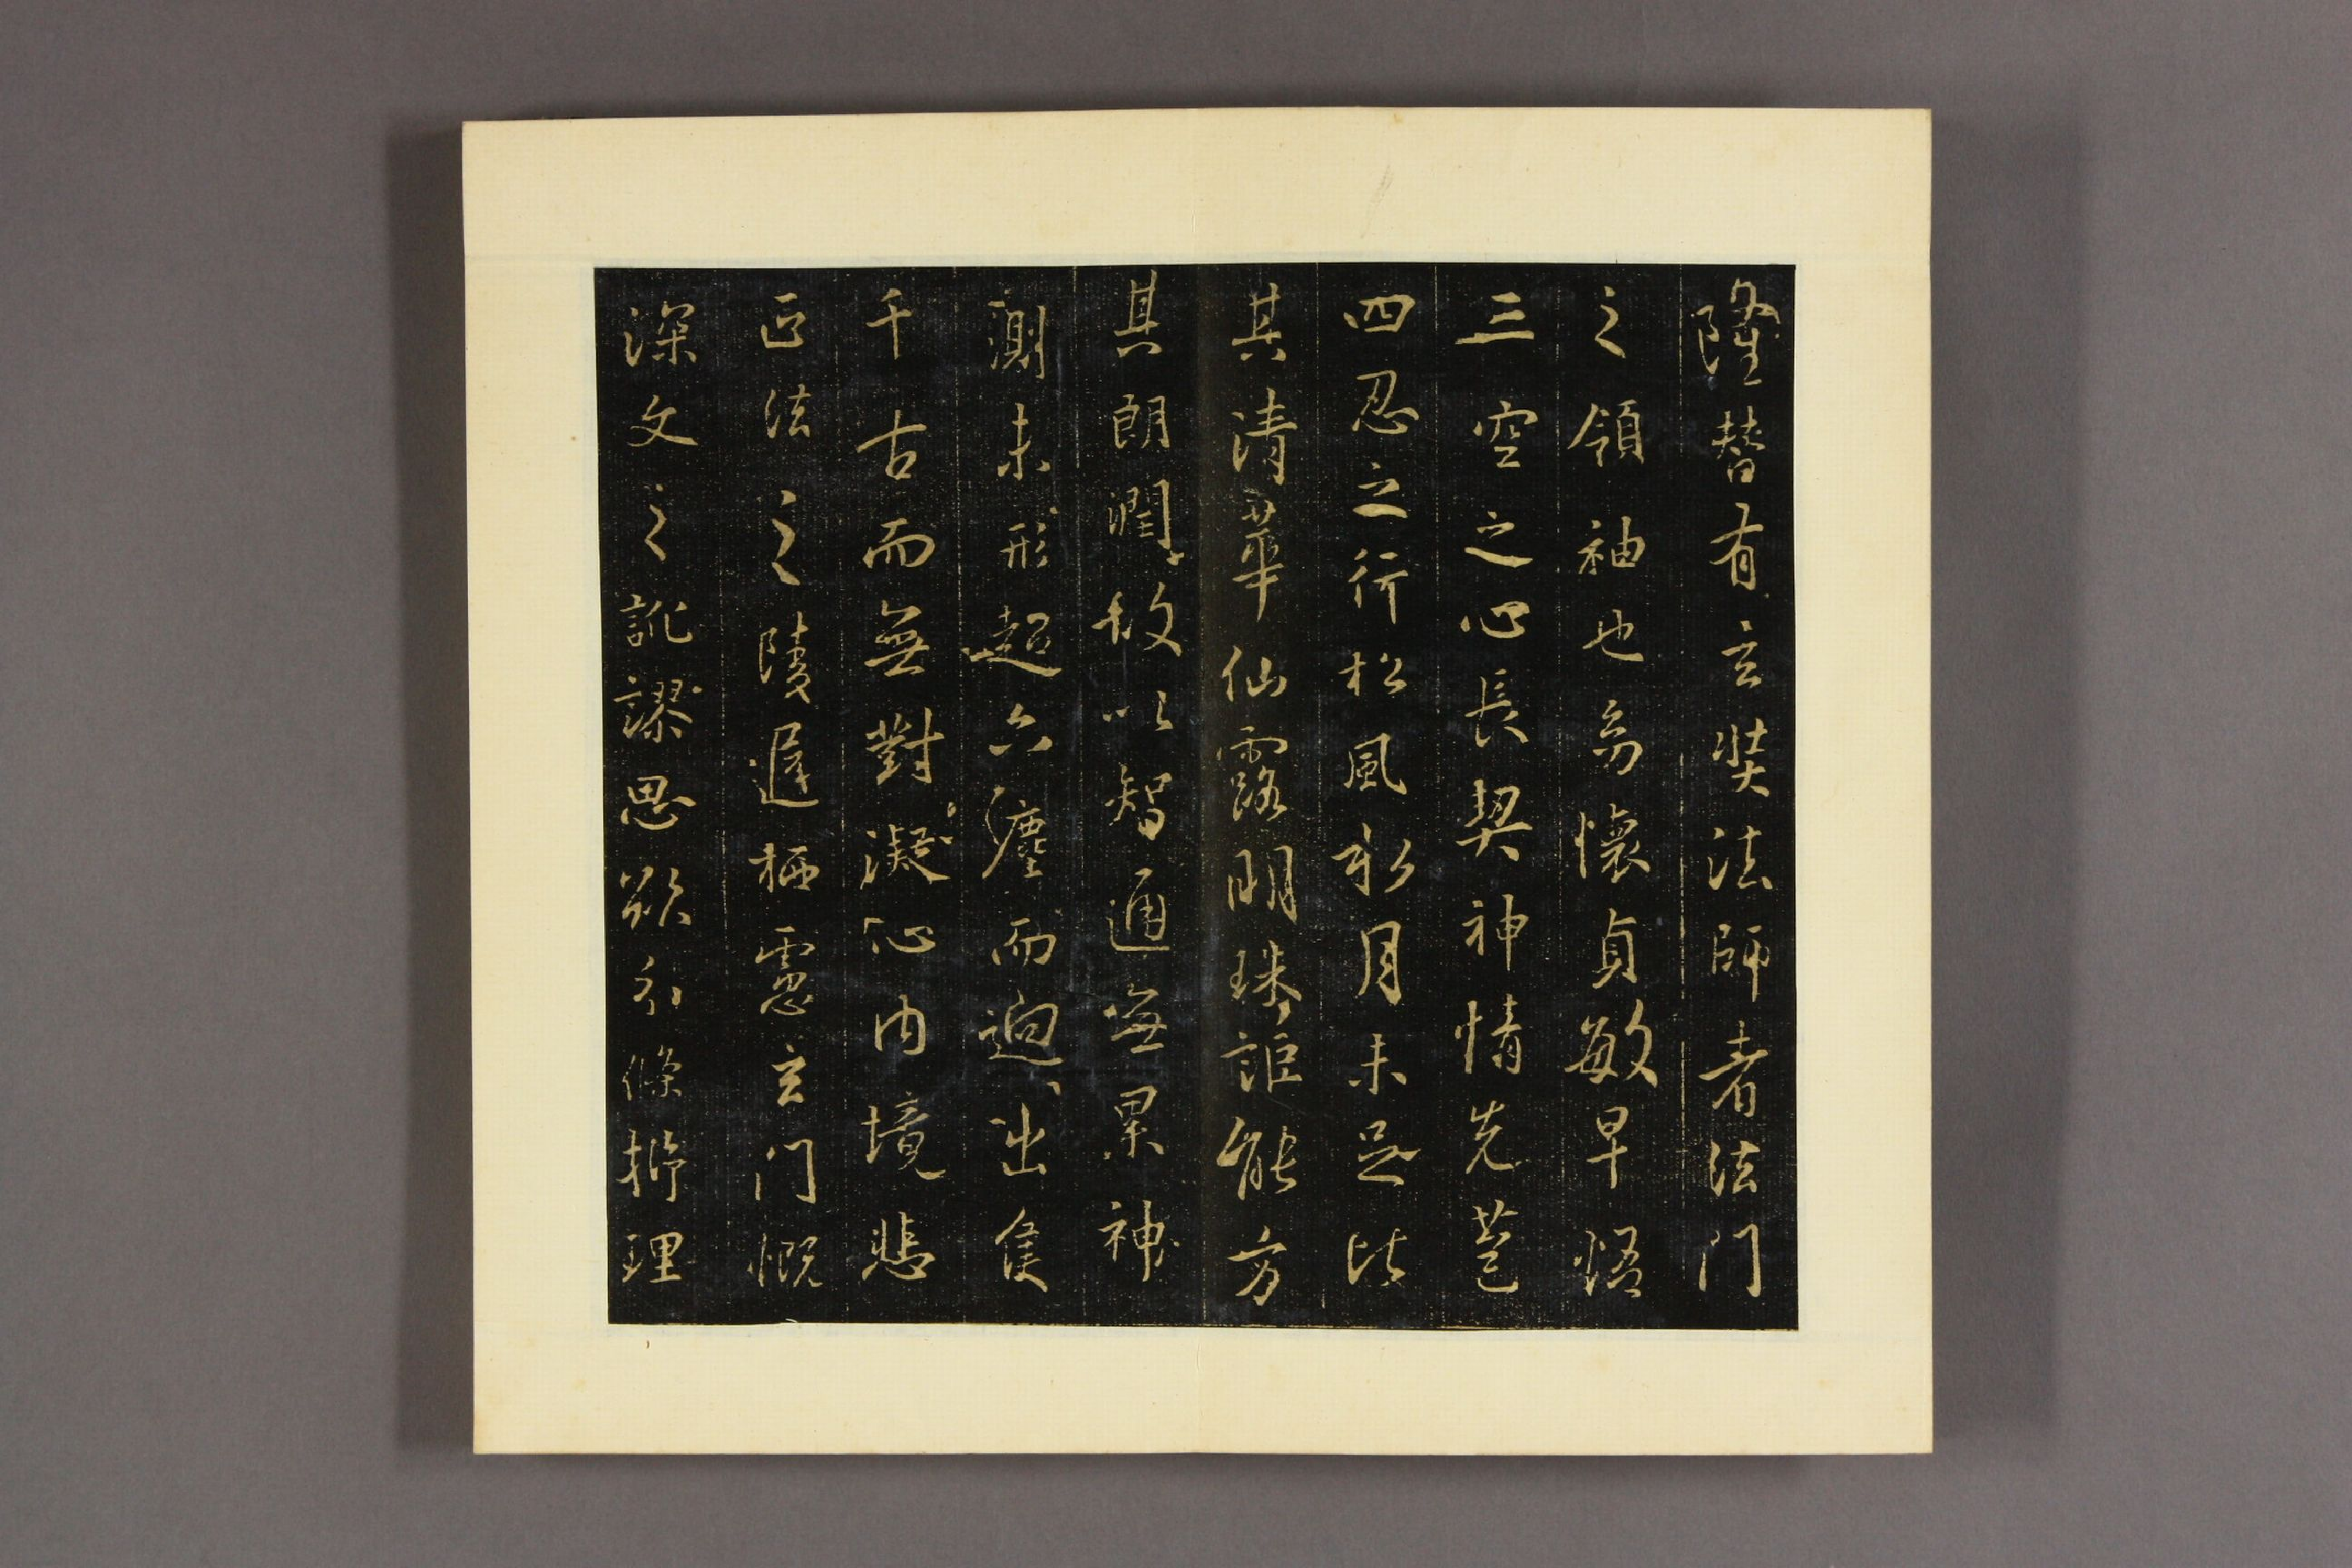 隆替有玄奘法師者法門
之領袖也㓜懷貞敏早悟
三空之心長契神情先苞
四忍之行松風水月未足比
其清華仙露明珠詎能方
其朗潤故以智通無累神
測未形超六塵而迥出隻
千古而無對凝心內境悲
正法之陵遲栖慮玄門慨
深文之訛謬思欲分條析理